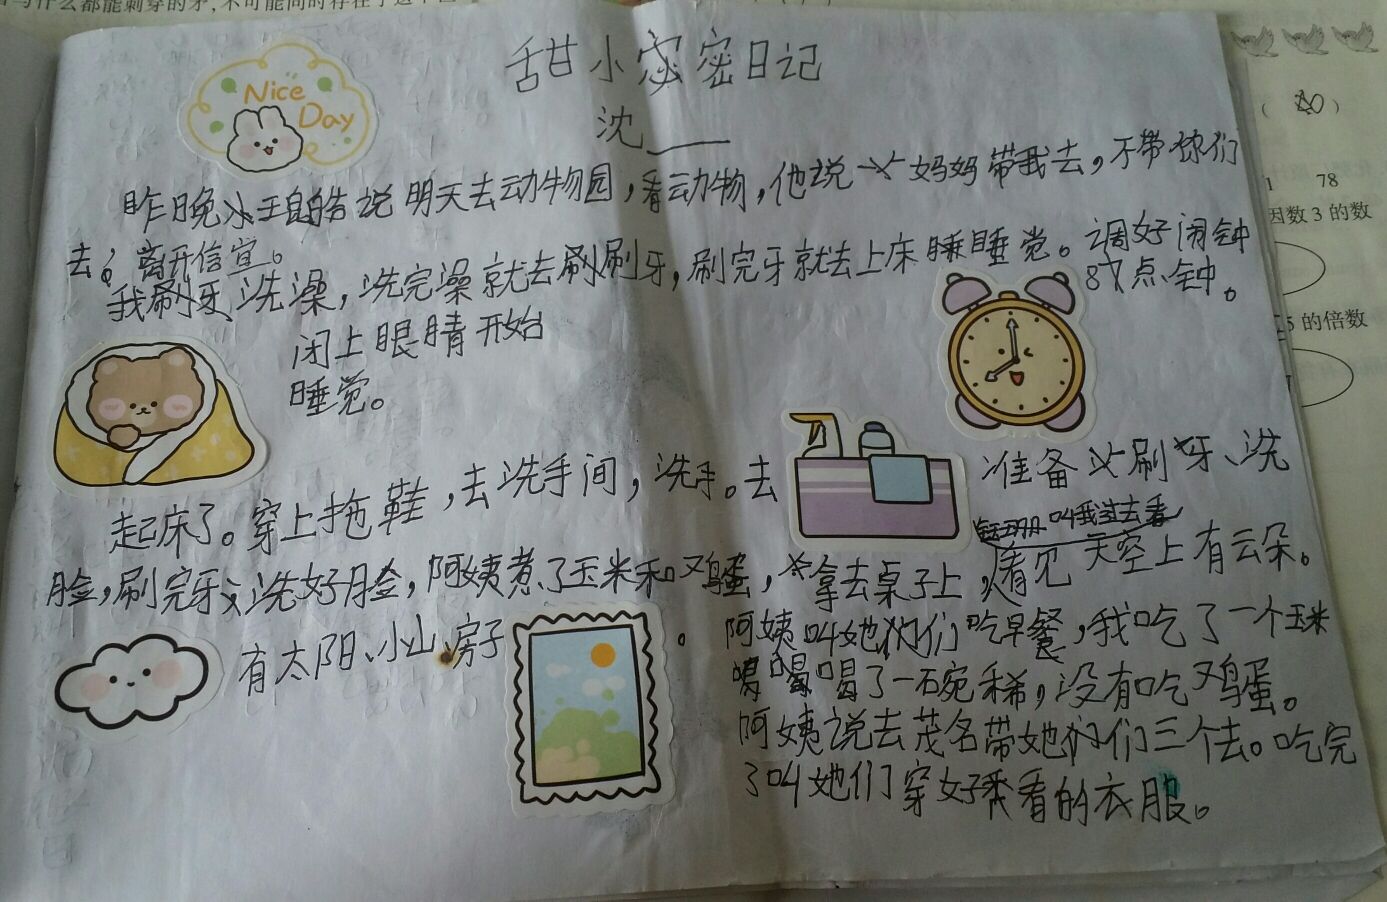 有什么都能刺穿的矛,不可能同时存在于这个
甜小密密日记
沈___
Nice
Day
昨晚王皓说明天去动物园，看动物，他说妈妈带我去，不带你们
去。离开信宜。
我刷牙洗澡，洗完澡就去刷刷牙，刷完牙就去上床睡睡觉。调好闹钟
8点钟。
闭上眼睛开始
睡觉。
起床了。穿上拖鞋，去洗手间，洗手。去
准备刷牙、洗
叫我过去看
脸，刷完牙，洗好脸，阿姨煮了玉米和鸡蛋，拿去桌子上，看见天空上有云朵。
有太阳、小山、房子
。阿姨叫她们吃早餐，我吃了一个玉米
喝喝了一碗稀，没有吃鸡蛋。
阿姨说去茂名带她们三个去。吃完
了叫她们穿好看的衣服。
1 78
因数3的数
5的倍数